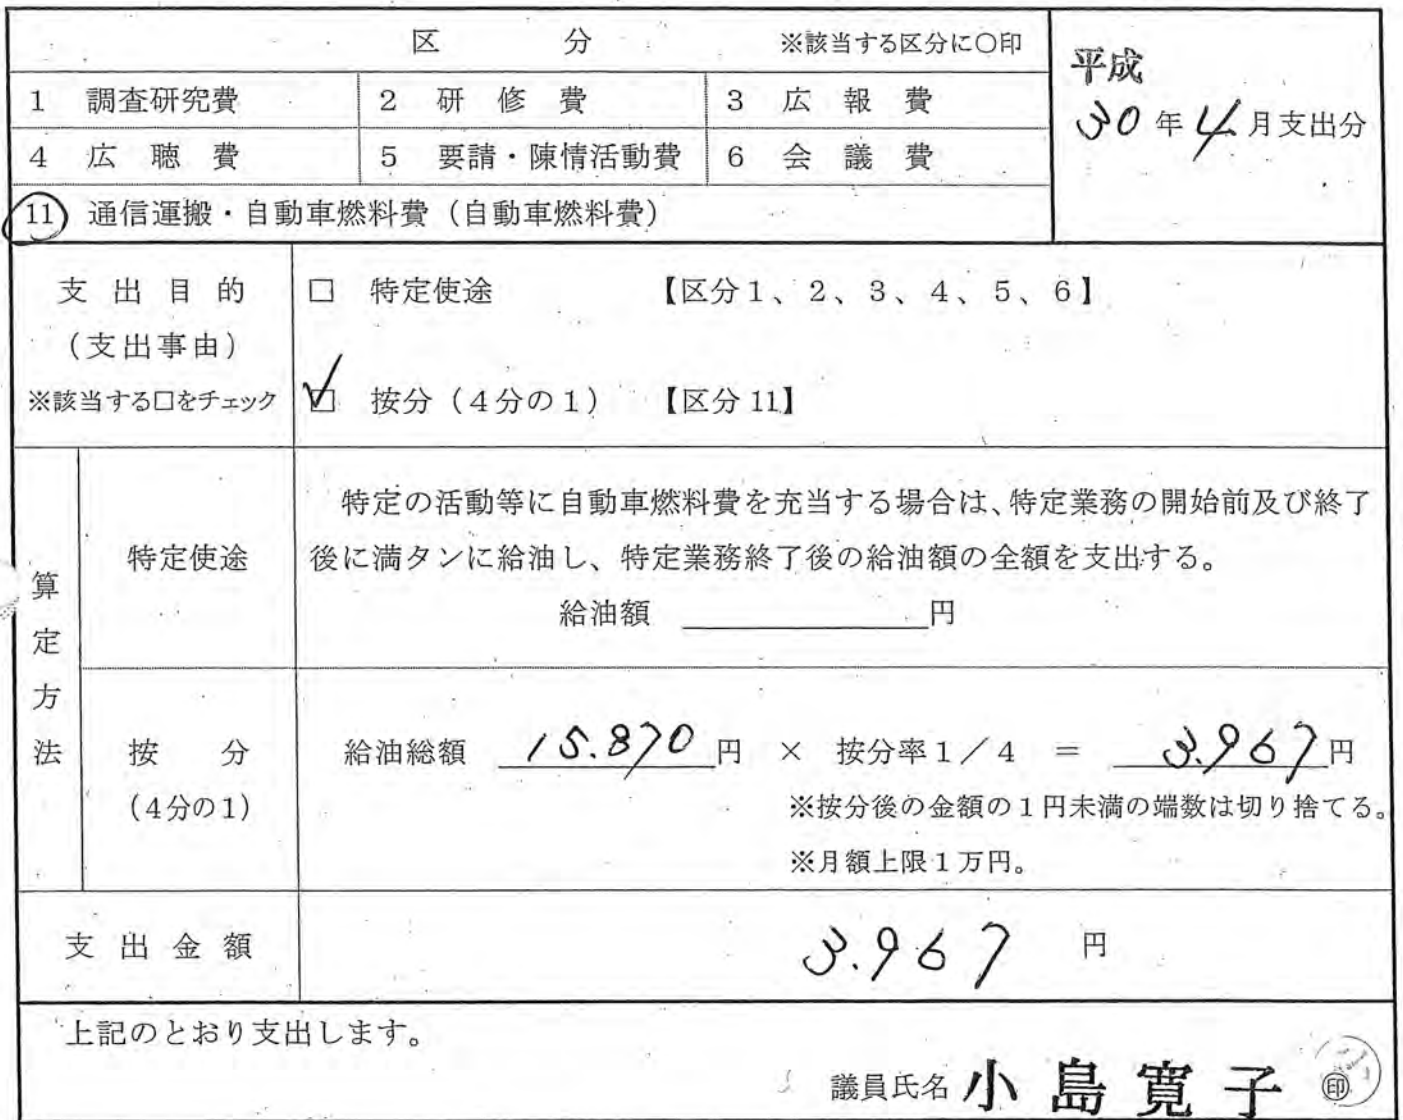 区　分　※該当する区分に○印
平成
30年4月支出分
1　調査研究費　2　研修費　3　広報費
4　広聴費　5　要請・陳情活動費　6　会議費
11　通信運搬・自動車燃料費（自動車燃料費）
支出目的
（支出事由）
※該当する□をチェック
□　特定使途　【区分1、2、3、4、5、6】
☑　按分（4分の1）　【区分11】
算定方法
特定使途
特定の活動等に自動車燃料費を充当する場合は、特定業務の開始前及び終了
後に満タンに給油し、特定業務終了後の給油額の全額を支出する。
給油額　　　　円
按分
（4分の1）
給油総額　15.870円　×　按分率1／4　＝　3.967円
※按分後の金額の1円未満の端数は切り捨てる。
※月額上限1万円。
支出金額　3.967　円
上記のとおり支出します。
議員氏名　小島寛子　㊞